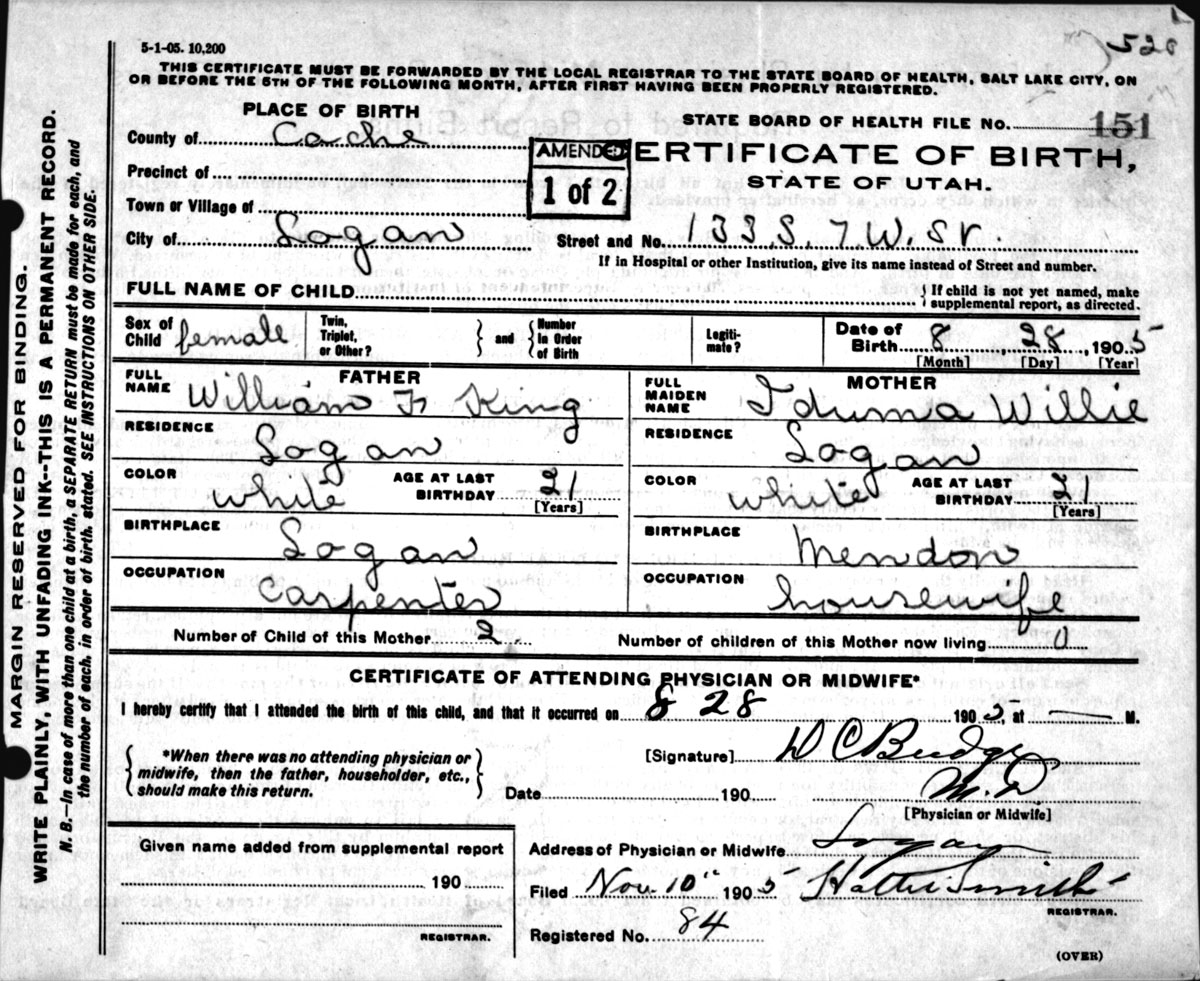 5-1-05. 10,200
528
THIS CERTIFICATE MUST BE FORWARDED BY THE LOCAL REGISTRAR TO THE STATE BOARD OF HEALTH, SALT LAKE CITY, ON
OR BEFORE THE 5TH OF THE FOLLOWING MONTH, AFTER FIRST HAVING BEEN PROPERLY REGISTERED.
PLACE OF BIRTH
County of Cache
Precinct of
Town or Village of
City of Logan
STATE BOARD OF HEALTH FILE NO. 151
AMENDED
1 of 2
ERTIFICATE OF BIRTH,
STATE OF UTAH.
Street and No. 133 S. 7 W. St.
If in Hospital or other Institution, give its name instead of Street and number.
FULL NAME OF CHILD
{ If child is not yet named, make
supplemental report, as directed.
Sex of
Child female
Twin,
Triplet,
or Other?
} and {
Number
in Order
of Birth
Legiti-
mate?
Date of
Birth 8, 28, 1905
[Month] [Day] [Year]
FATHER
FULL
NAME William F King
RESIDENCE
Logan
COLOR
white
AGE AT LAST
BIRTHDAY 21
[Years]
BIRTHPLACE
Logan
OCCUPATION
Carpenter
MOTHER
FULL
MAIDEN
NAME Iduma Willie
RESIDENCE
Logan
COLOR
white
AGE AT LAST
BIRTHDAY 21
[Years]
BIRTHPLACE
Mendon
OCCUPATION
housewife
Number of Child of this Mother 2
Number of children of this Mother now living 0
CERTIFICATE OF ATTENDING PHYSICIAN OR MIDWIFE*
I hereby certify that I attended the birth of this child, and that it occurred on 8 28 1905, at — M.
{ *When there was no attending physician or
midwife, then the father, householder, etc.,
should make this return. }
[Signature] D C Budge
M.D
Date 190
[Physician or Midwife]
Given name added from supplemental report
190
REGISTRAR.
Address of Physician or Midwife Logan
Filed Nov. 10" 1905 Hattie Smith
REGISTRAR.
Registered No. 84
(OVER)
MARGIN RESERVED FOR BINDING.
WRITE PLAINLY, WITH UNFADING INK--THIS IS A PERMANENT RECORD.
N. B.—In case of more than one child at a birth, a SEPARATE RETURN must be made for each, and
the number of each, in order of birth, stated. SEE INSTRUCTIONS ON OTHER SIDE.